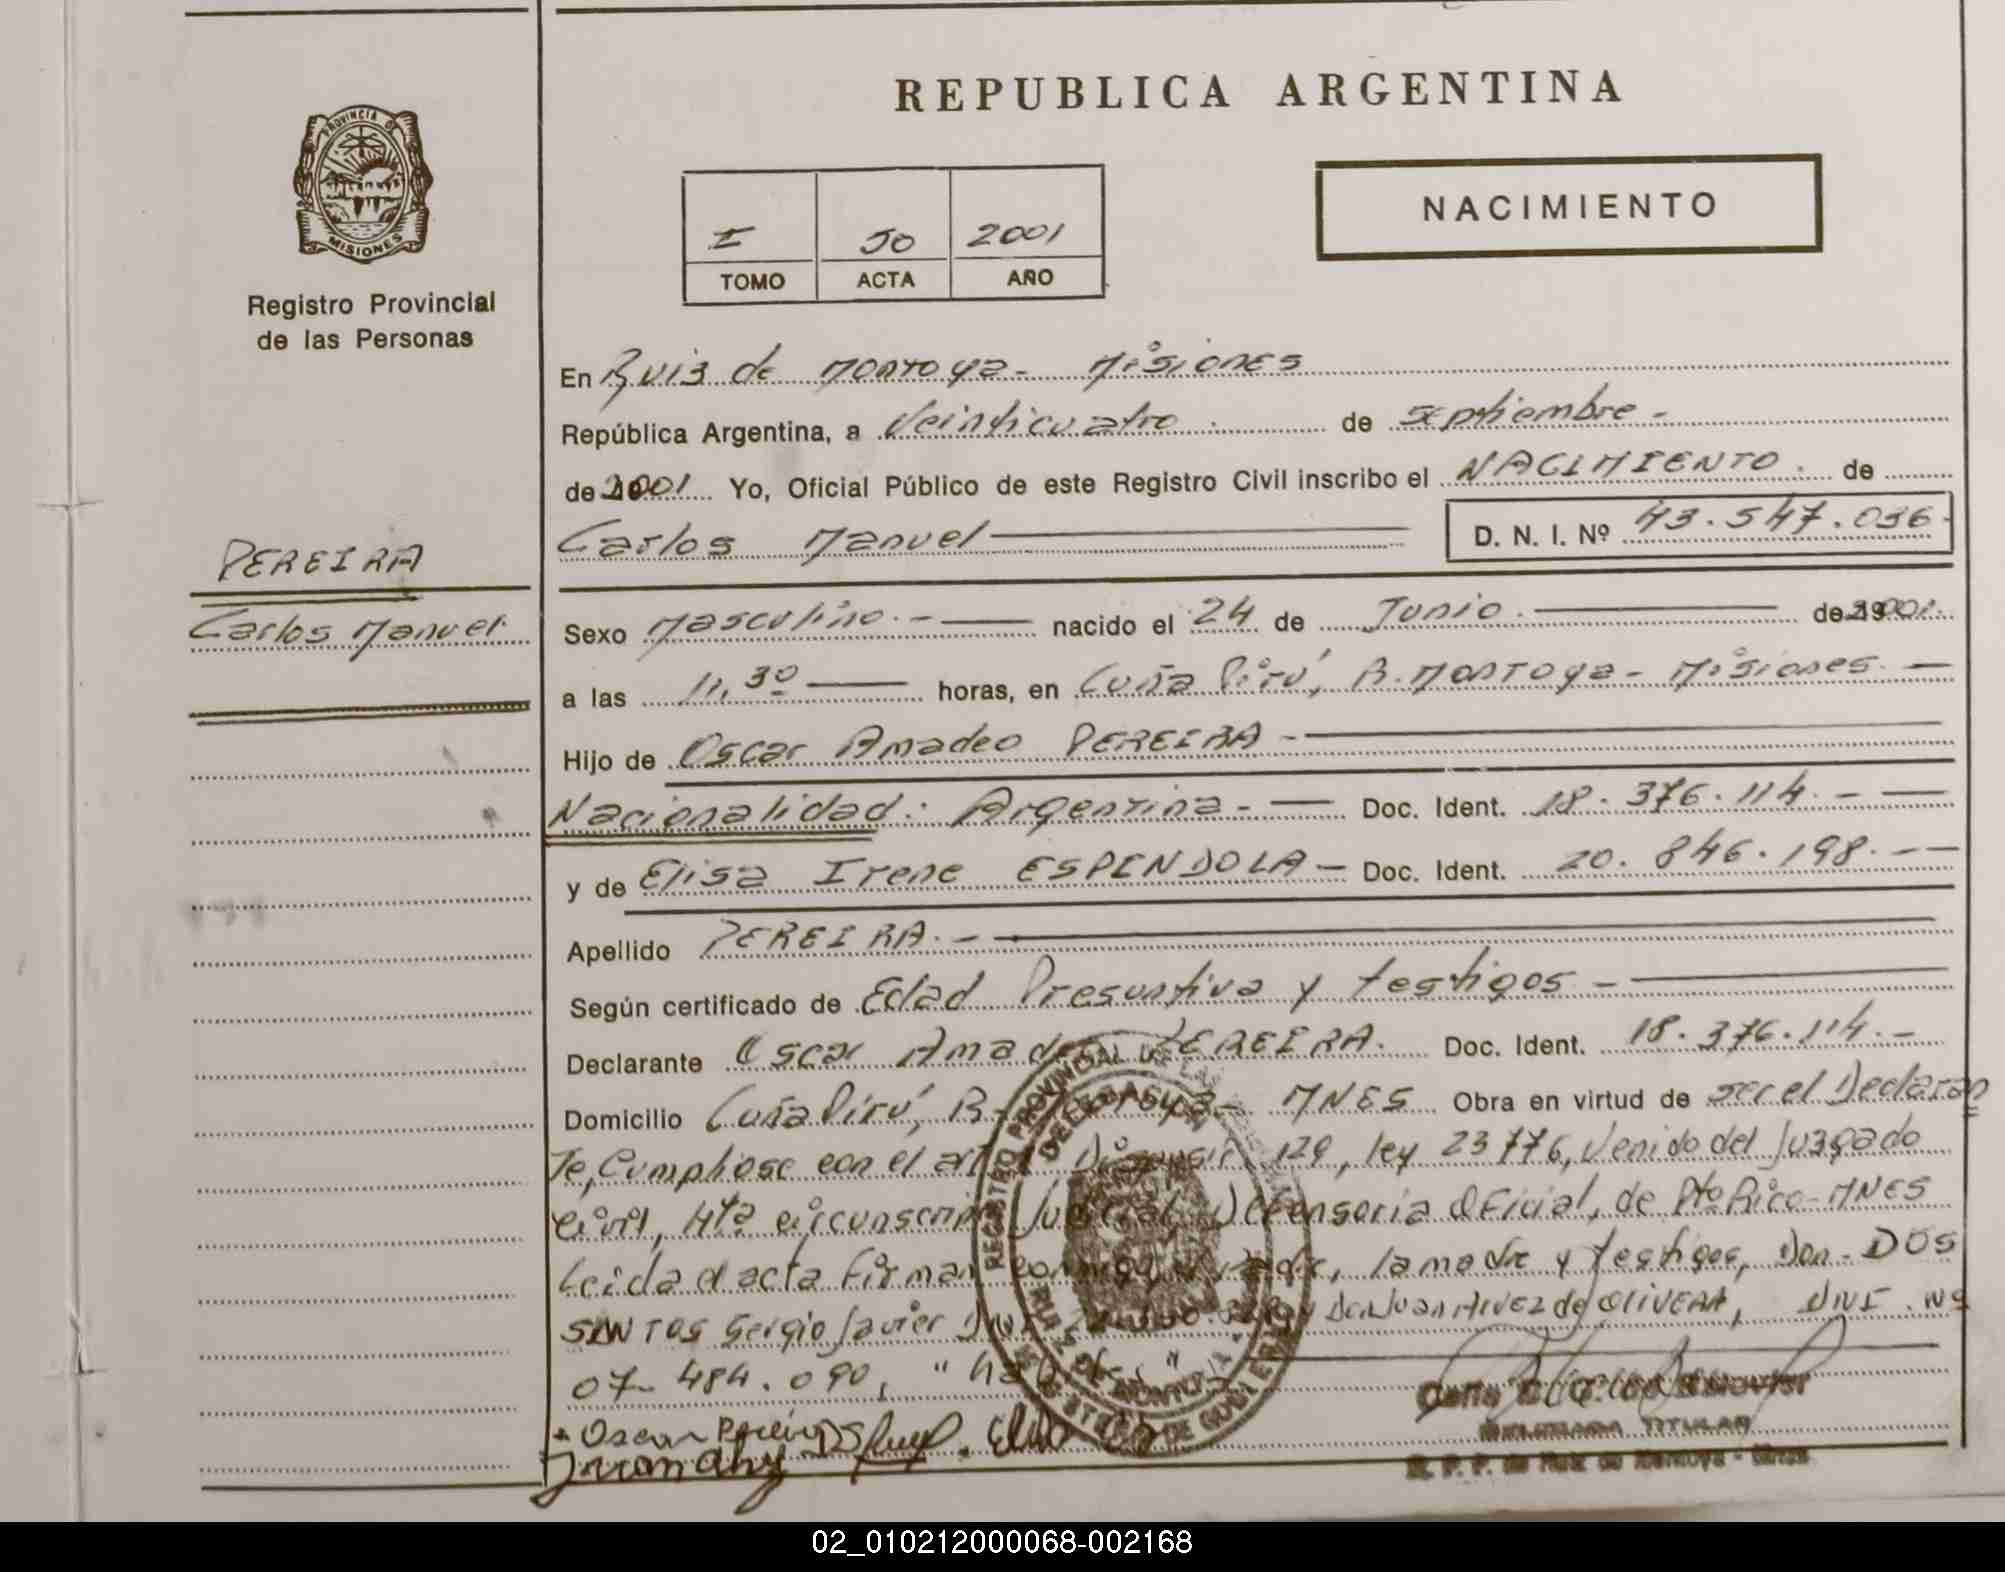 PROVINCIA DE
MISIONES
Registro Provincial
de las Personas
PEREIRA
Carlos Manuel
REPUBLICA ARGENTINA
NACIMIENTO
I 50 2001
TOMO ACTA AÑO
En Ruiz de Montoya - Misiones
República Argentina, a Veinticuatro de Septiembre -
de 2001 Yo, Oficial Público de este Registro Civil inscribo el NACIMIENTO. de
Carlos Manuel D. N. I. Nº 43.547.036-
Sexo Masculino.- nacido el 24 de Junio. de 2001.
a las 11,30 horas, en Cuña Pirú, R. Montoya - Misiones.
Hijo de Oscar Amadeo PEREIRA -
Nacionalidad: Argentina - Doc. Ident. 18.376.114.-
y de Elisa Irene ESPINDOLA - Doc. Ident. 20.846.198.-
Apellido PEREIRA.-
Según certificado de Edad Presuntiva y testigos -
Declarante Oscar Amadeo PEREIRA. Doc. Ident. 18.376.114.-
Domicilio Cuña Pirú, R. MNES Obra en virtud de ser el Declaran
te, Cumpliose con el art. 129, ley 23776, Venido del Juzgado
Civil, 4ta circunscrip Judicial Defensoria Oficial, de Pto Rico - MNES
Leida el acta firman conmigo el padre, la madre y testigos, Don - DOS
SANTOS Sergio Javier DNI Don Juan ALVEZ de OLIVERA, DNI. Nº
07-484.090,
Oscar Pereira
REGISTRO PROVINCIAL DE LAS
DELEGACION
RUIZ DE MONTOYA
DIPUTADA TITULAR
R. P. P. de Ruiz de Montoya - Mnes
02_010212000068-002168